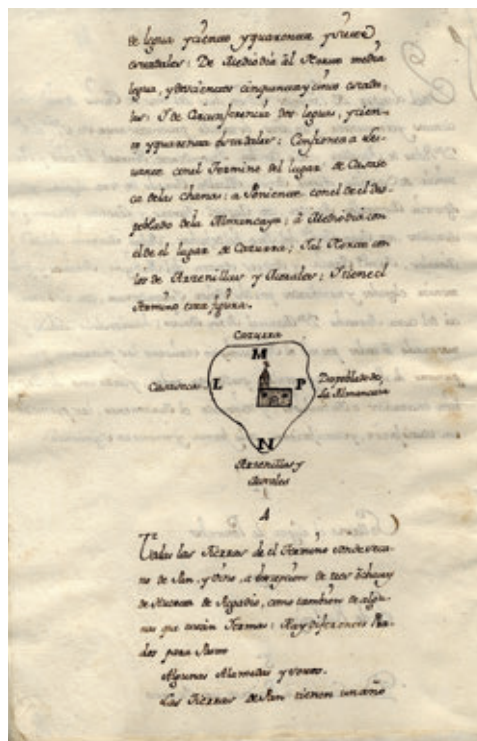 de legua y ciento y quarenta y siete
estadales: De Mediodia al Norte media
legua, y doscientos cinquenta y cinco estada-
les: Y de Circunferencia dos leguas, y cien-
to y quarenta estadales: Confronta a Le-
vante con el Termino del lugar de Casase-
ca de las chanas: a Poniente con el de el des-
poblado de la Almancaya: a Mediodia con
el de el lugar de Cazurra; Y al Norte con
los de Arzenillas y Morales: Y tiene el
Termino esta figura.
Cazurra
M
Casaseca
L
P
Despoblado de
La Almancaya
N
Arzenillas y
Morales
A
Todas las Tierras de el Termino son de secano
no de Pan, y vino, a excepcion de
de Huertas de Regadio, como tambien de algu-
nas que Hay diferentes Pra-
dos para Pasto
Algunas Alamedas y sotos.
Las Tierras de Pan tienen un año